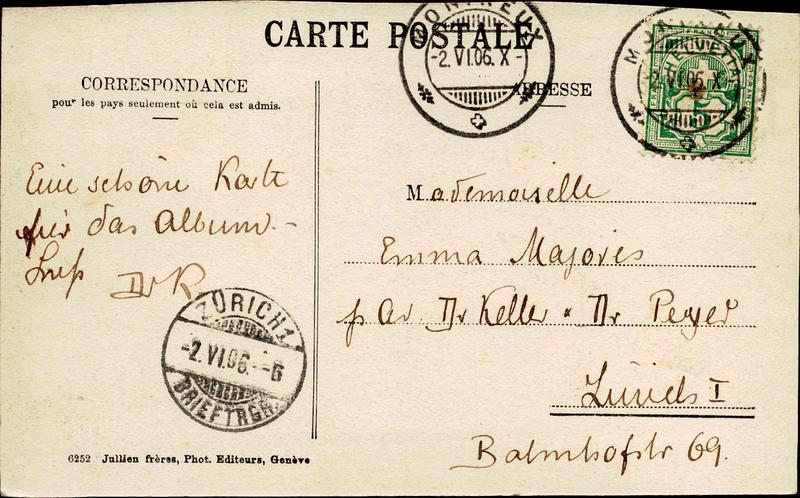 CARTE POSTALE
CORRESPONDANCE
pour les pays seulement où cela est admis.
Eine schöne Karte
für das Album.-
Gruss DrK
ADRESSE
Mademoiselle
Emma Majores
p Ad Dr Keller & Dr Peyer
Zürich I
Bahnhofstr 69.
MONTREUX
-2.VI.06.X-
MONTREUX
-2.VI.06.X
HELVETIA
ZÜRICH 1
-2.VI.06.-6
BRIEFTRGR.
6252 Jullien frères, Phot. Editeurs, Genève